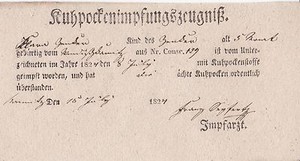 Kuhpockenimpfungszeugniß.
Kind des alt 5 Monat
gebürtig von aus Nr. Conscr. 139 ist vom Unter-
zeichneten im Jahre 1824 den 8 July mit Kuhpockenstoffe
geimpft worden, und hat die ächte Kuhpocken ordentlich
überstanden.
Den 15 July 1824 Franz
Impfarzt.